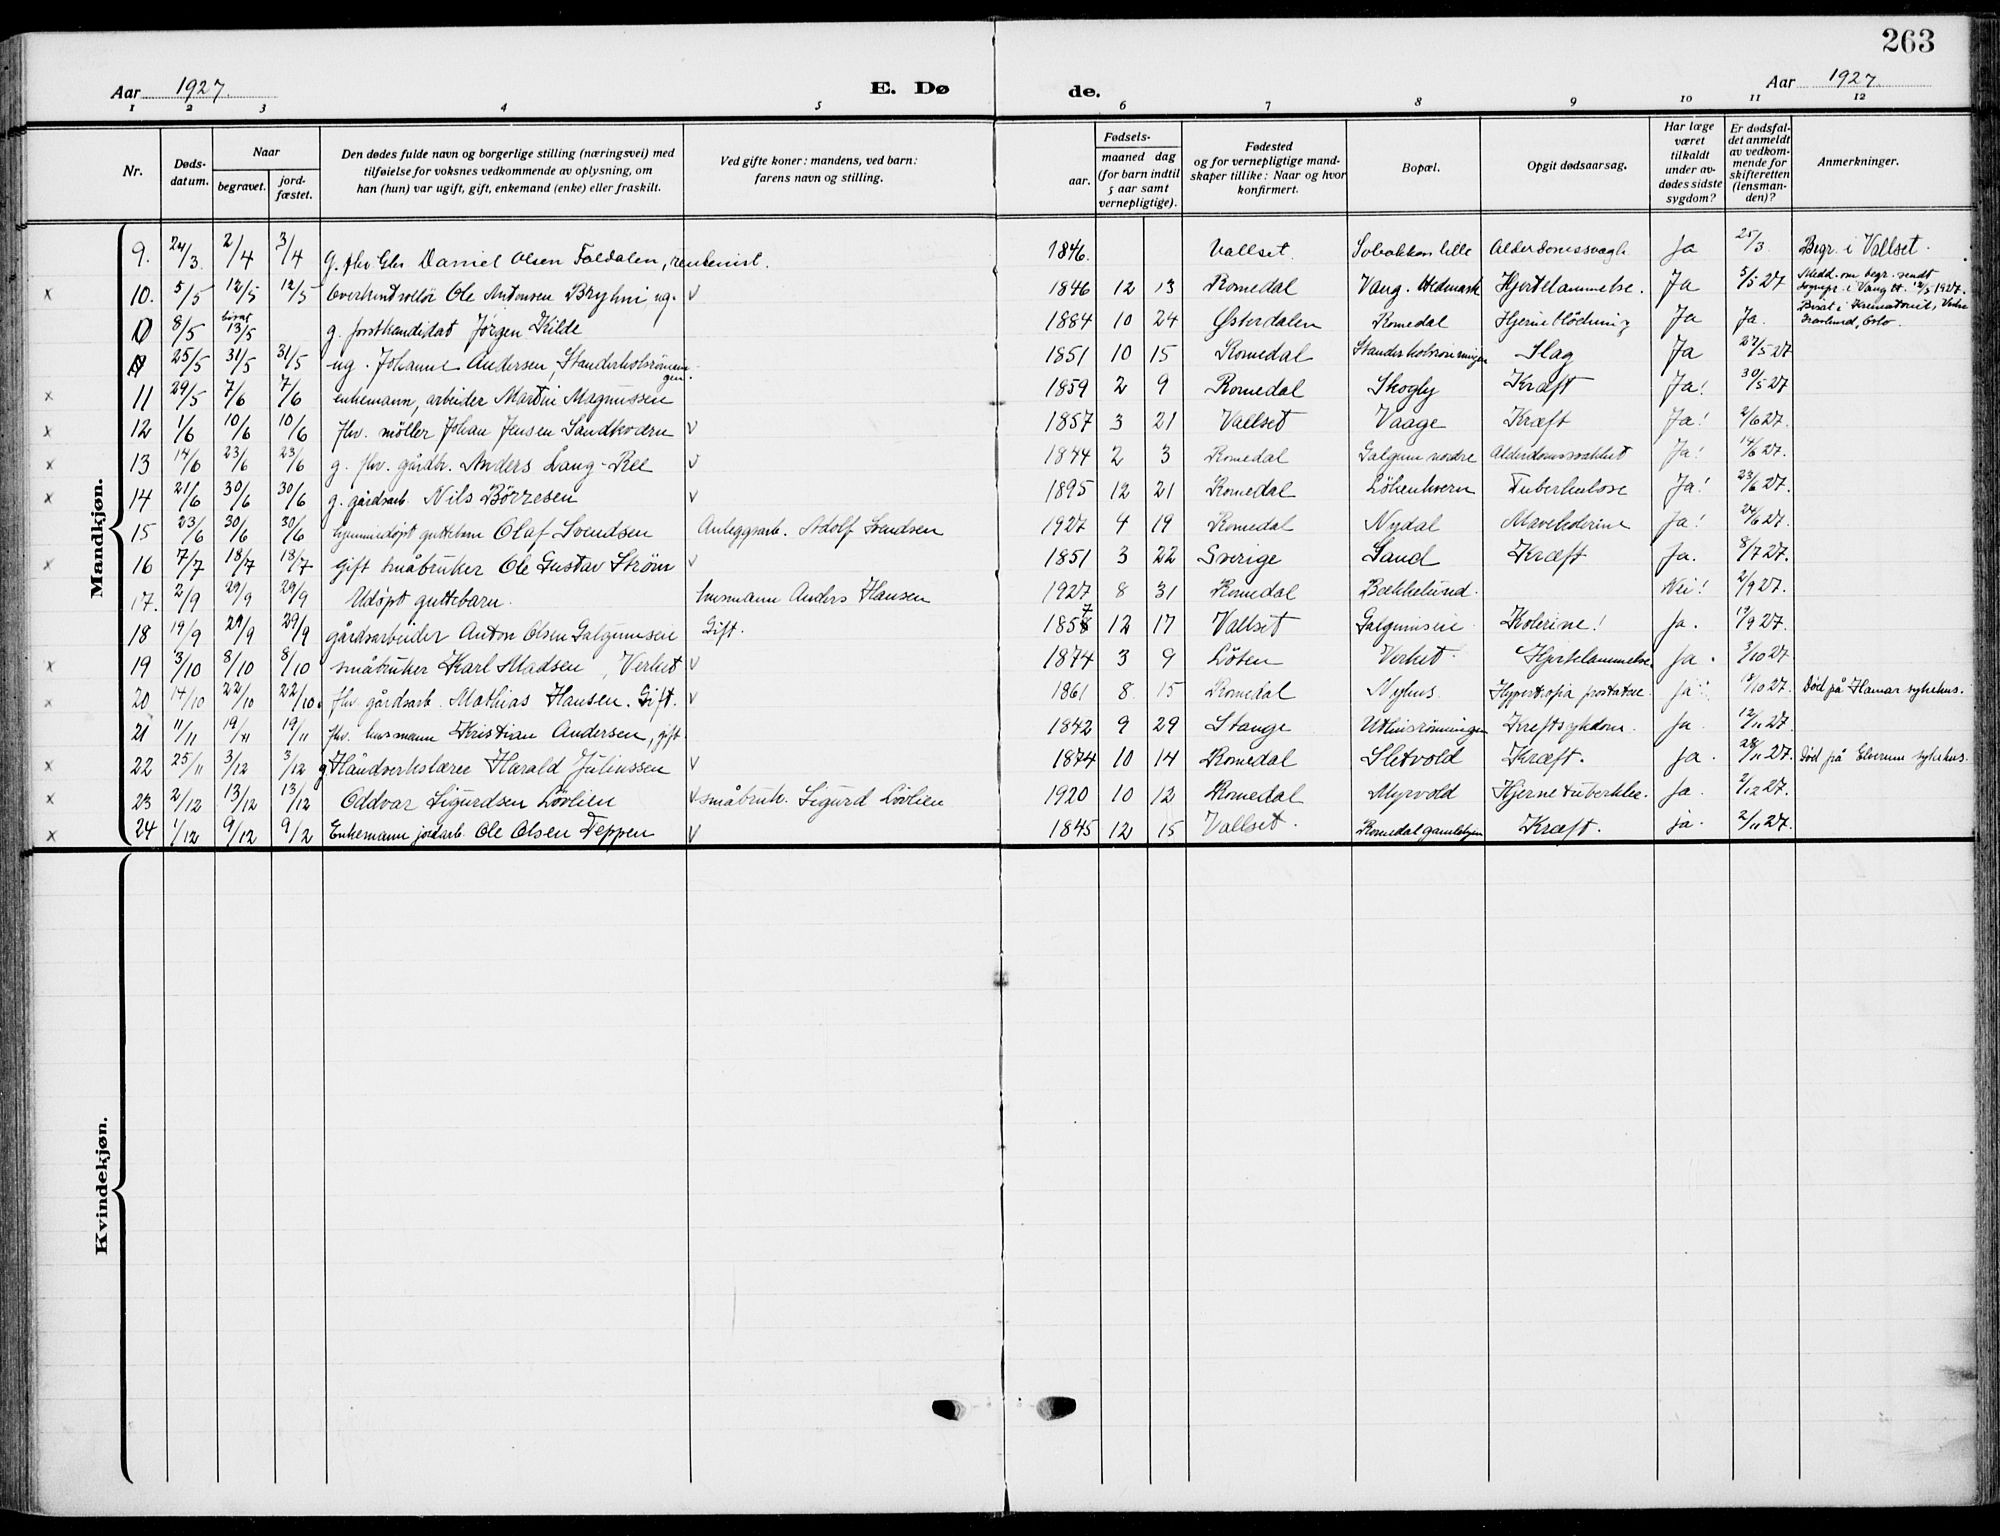 263
Aar 1927. E. Dø de. Aar 1927
1 2 3 4 5 6 7 8 9 10 11 12
Nr. Døds-datum. Naar begravet. jord-fæstet. Den dødes fulde navn og borgerlige stilling (næringsvei) med tilføielse for voksnes vedkommende av oplysning, om han (hun) var ugift, gift, enkemand (enke) eller fraskilt. Ved gifte koner: mandens, ved barn: farens navn og stilling. Fødsels- aar. maaned dag (for barn indtil 5 aar samt vernepligtige). Fødested og for vernepligtige mandskaper tillike: Naar og hvor konfirmert. Bopæl. Opgit dødsaarsag. Har læge været tilkaldt under avdødes sidste sygdom? Er dødsfaldet anmeldt av vedkommende for skifteretten (lensmanden)? Anmerkninger.
Mandkjøn.
9. 24/3 2/4 3/4 g. fhv. Daniel Olsen Foldalen, rentenist. 1846. Vallset. lille Ja 25/3 Begr. i Vallset.
x 10. 5/5 12/5 12/5 Overkontrollør Ole Antonsen Bryhni, ug. v 1846 12 13 Romedal Vang. Hedmark Hjertelammelse. Ja 5/5 27 Medd. om begr. sendt sognepr. i Vang H. 12/5 1927.
8/5 bisat 13/5 g. forstkandidat Jørgen Kilde 1884 10 24 Østerdalen Romedal Hjerneblödning Ja Ja. Bisat i Krematoriet, Vestre Gravlund, Oslo.
25/5 31/5 31/5 ug. Johanne Andersen, 1851 10 15 Romedal Slag Ja 27/5 27
x 11 29/5 7/6 7/6 enkemann, arbeider Martin Magnussen 1859 2 9 Romedal Skogly Kræft Ja! 30/5 27
x 12 1/6 10/6 10/6 fhv. møller Johan Jensen Sandkværn v 1857 3 21 Vallset Vaage Kræft Ja! 2/6 27.
x 13 14/6 23/6 23/6 g. fhv. gårdbr. Anders Lang-Ree v 1844 2 3 Romedal Galgum nordre Ja! 14/6 27.
x 14 21/6 30/6 30/6 g. gårdsarb. Nils Börresen v 1895 12 21 Romedal Tuberkulose Ja! 23/6 27.
15 23/6 30/6 30/6 hjemmedøpt guttebarn Olaf Svendsen Anleggsarb. Adolf Svendsen 1927 4 19 Romedal Nydal Mavekolerine Ja! 24/6 27.
x 16 7/7 18/7 18/7 gift småbruker Ole Gustav Ström v 1851 3 22 Sverige Sand Kræft Ja. 8/7 27.
17. 2/9 29/9 29/9 Udöpt guttebarn. husmann Anders Hansen 1927 8 31 Romedal Bækkelund. Nei! 2/9 27.
18 19/9 29/9 29/9 gårdsarbeider Anton Olsen Galgumseie Gift. 1857 12 17 Vallset Galgumseie Kolerine! Ja. 19/9 27.
x 19 3/10 8/10 8/10 småbruker Karl Madsen, Verket v 1874 3 9 Löten Verket. Hjertelammelse. Ja. 3/10 27
x 20 14/10 22/10 22/10 fhv. gårdsarb. Mathias Hansen. Gift. v 1861 8 15 Romedal Nyhus. Hypertrofia prostatae. Ja. Död på Hamar sykehus.
21 11/11 19/11 19/11 fhv. husmann Kristian Andersen, gift 1842 9 29 Stange Kreftsykdom. Ja. 12/11 27.
x 22 25/11 3/12 3/12 g. Håndverkslærer Harald Juliussen v 1874 10 14 Romedal Sletvold Kræft. Ja. 28/11 27. Död på Elverum sykehus.
x 23 2/12 13/12 13/12 Oddvar Sigurdsen Lövlien v småbruk. Sigurd Lövlien 1920 10 12 Romedal Myrvold Ja. 2/12 27.
x 24 1/12 9/12 9/12 Enkemann jordarb. Ole Olsen Teppen v 1845 12 15 Vallset. Romedal gamlehjem Kræft. ja. 2/11 27.
Kvindekjøn.